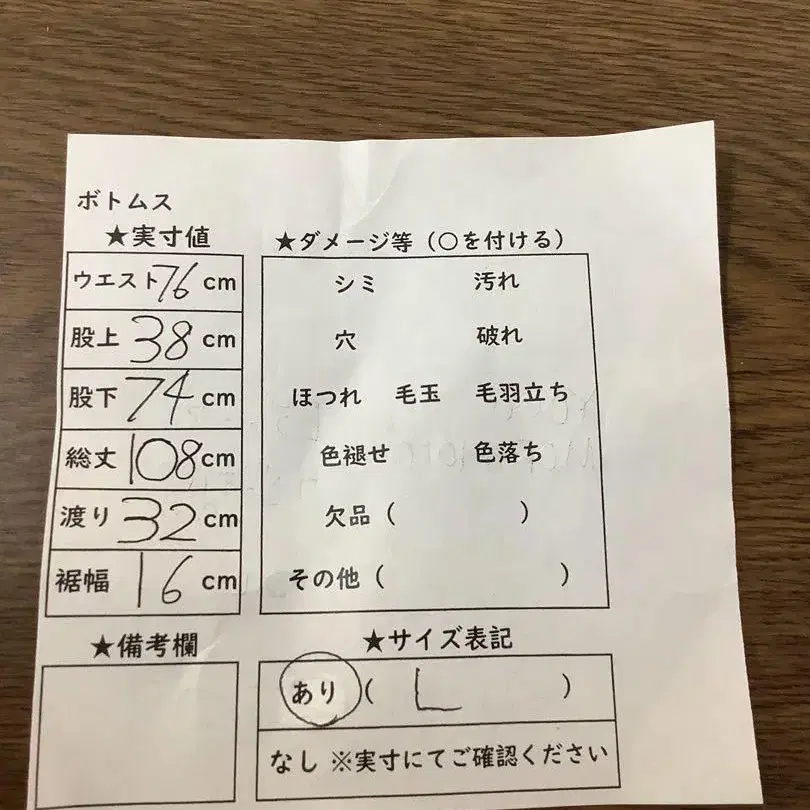 ボトムス
★実寸値
ウエスト76cm
股上 38 cm
股下 74 cm
総丈 108 cm
渡り 32 cm
裾幅 16 cm
★備考欄
★ダメージ等（○を付ける）
シミ 汚れ
穴 破れ
ほつれ 毛玉 毛羽立ち
色褪せ 色落ち
欠品（ ）
その他（ ）
★サイズ表記
あり（ L ）
なし ※実寸にてご確認ください